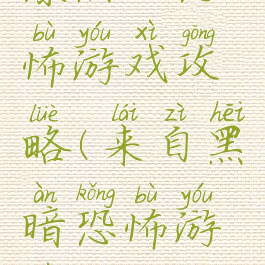 bù yóu xì gōng
怖游戏攻
lüè lái zì hēi
略(来自黑
àn kǒng bù yóu
暗恐怖游